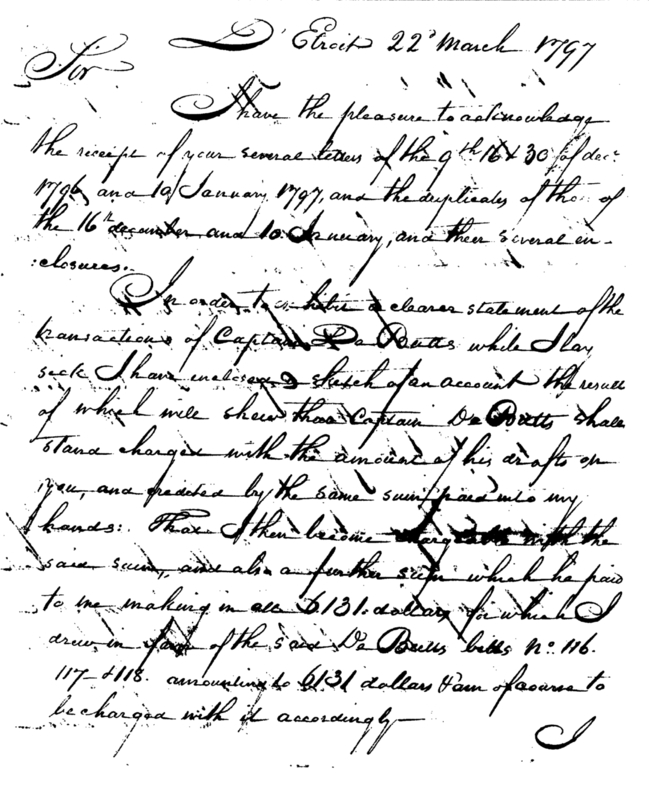 D'Etroit 22d March 1797
Sir
I have the pleasure to acknowledge
the receipt of your several letters of the 9th 16 & 30 of decr
1796 and 10 January 1797, and the duplicates of those of
the 16th december and 10 January, and their several en-
:closures.
In order to exhibit a clearer statement of the
transactions of Captain De Butts while I lay
sick I have inclosed a sketch of an account the result
of which will shew that Captain De Butts shall
stand charged with the amount of his drafts on
you, and credited by the same sum paid into my
hands: That I then become chargeable with the
said sum, and also a further sum which he paid
to me making in all 6131 dollars for which I
drew in favor of the said De Butts bills No. 116.
117 & 118. amounting to 6131 dollars & am of course to
be charged with it accordingly—
I